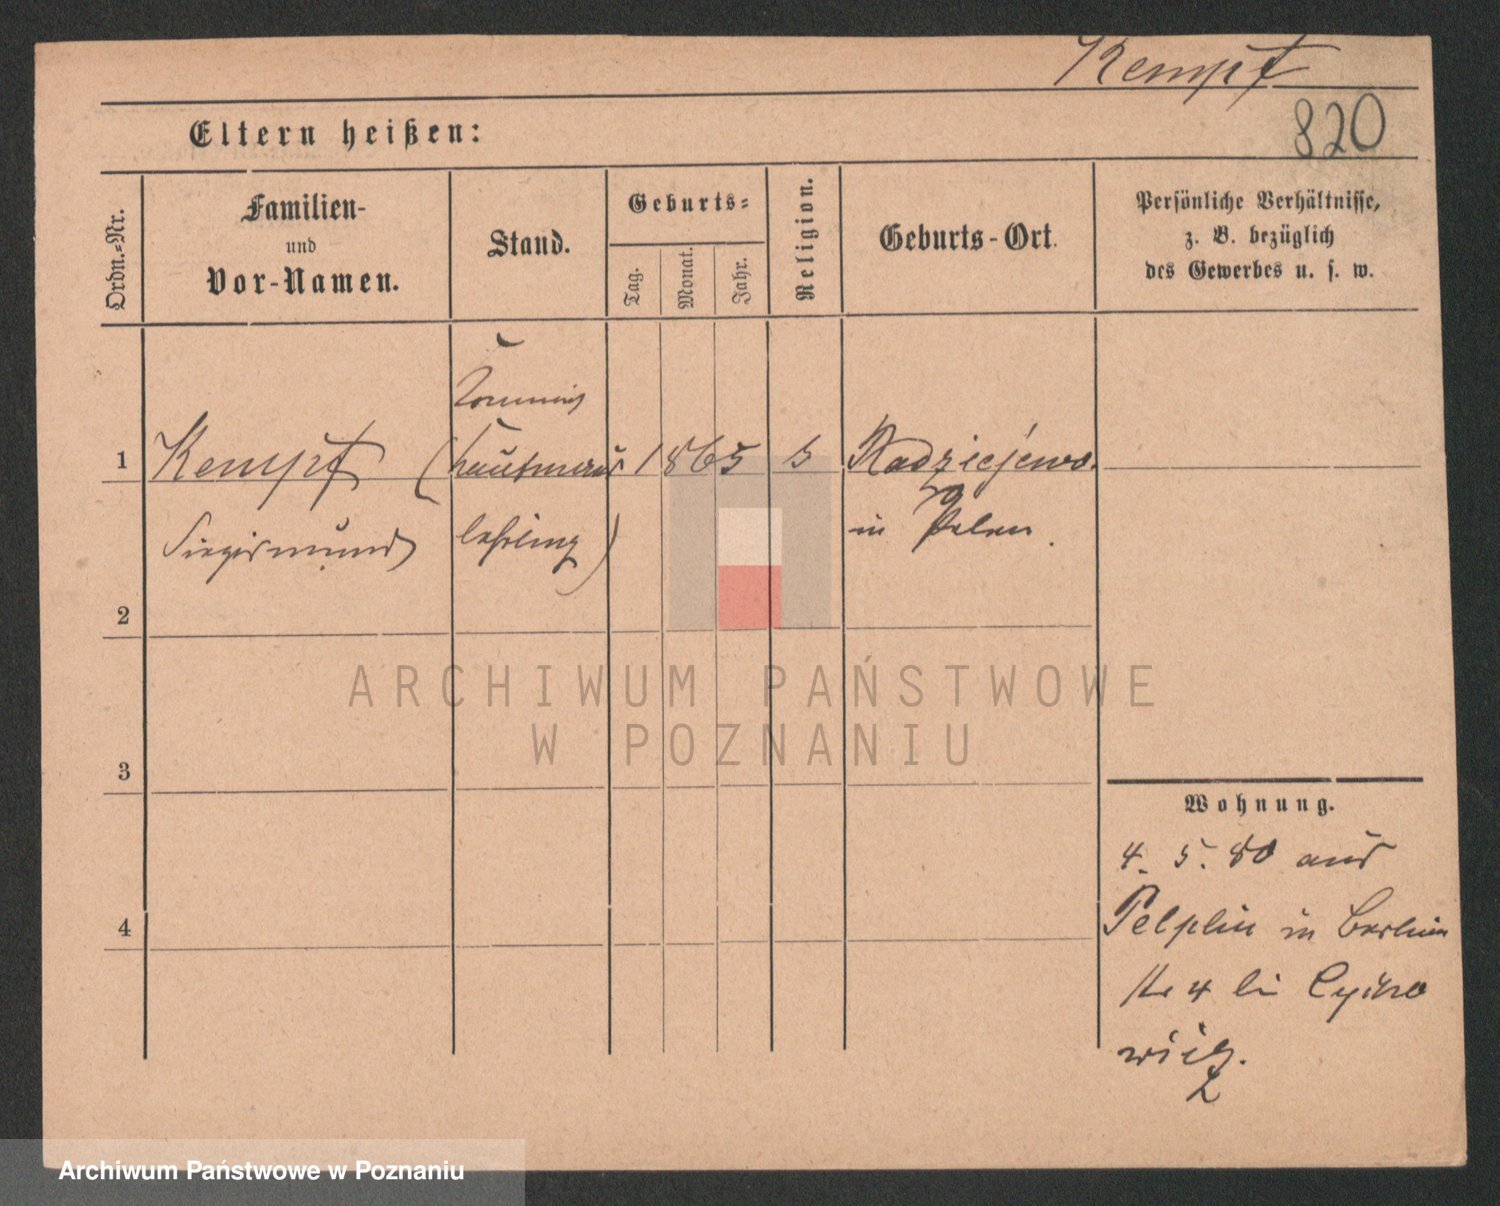 Kempf
820
Eltern heißen:
Ordn.-Nr.
Familien-
und
Vor-Namen.
Stand.
Geburts-
Tag.
Monat.
Jahr.
Religion.
Geburts-Ort.
Persönliche Verhältnisse,
z. B. bezüglich
des Gewerbes u. s. w.
1 Kempf (Kaufmans 1865 Radziejewo
Siegismund lehrling) in Polen.
2
3
4
Wohnung.
4. 5. 80 aus
Pelplin in
4
ARCHIWUM PAŃSTWOWE
W POZNANIU
Archiwum Państwowe w Poznaniu